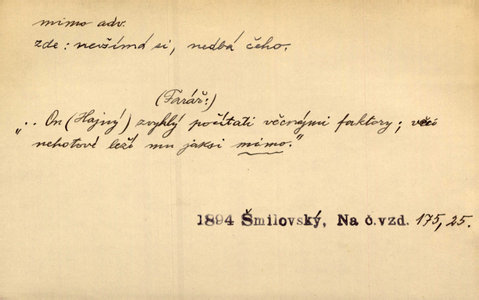 mimo adv.
zde: nevšímá si, nedbá čeho.
(Farář:)
„.. On (Hajný) zvyklý počítati věčnými faktory; věci
nehotové leží mu jaksi mimo."
1894 Šmilovský, Na č.vzd. 175, 25.